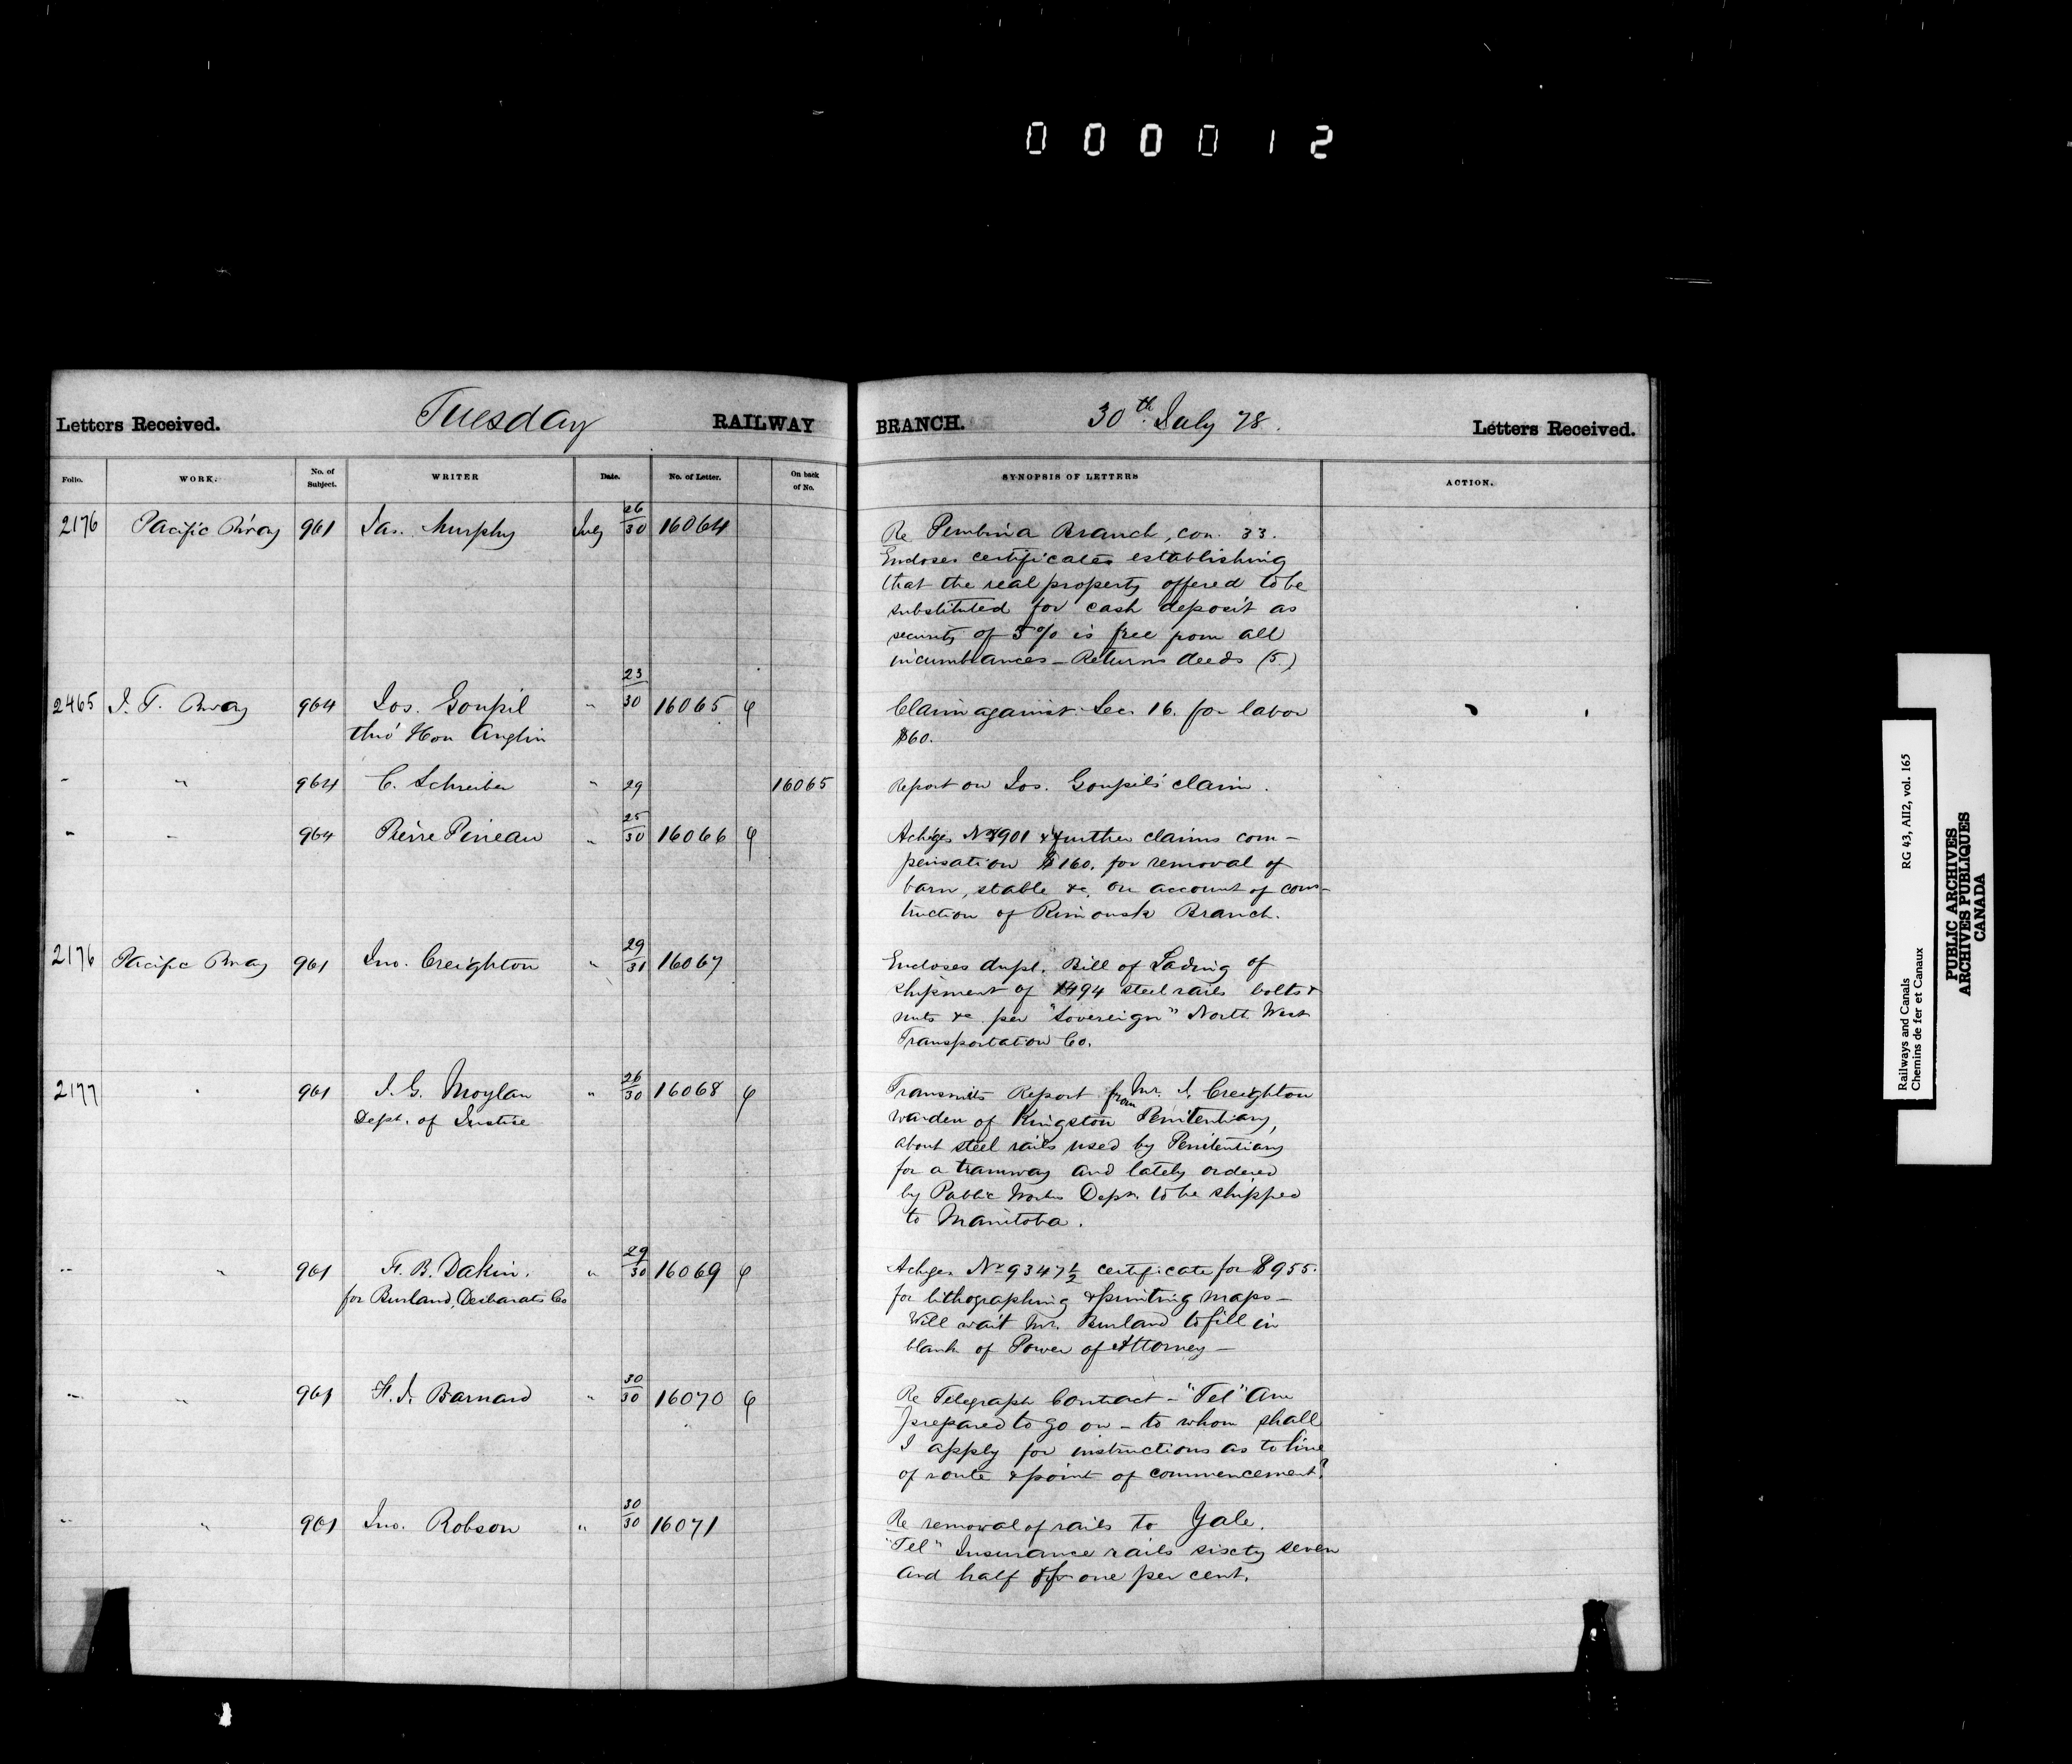 000012
Letters Received. Tuesday RAILWAY BRANCH. 30th July 78. Letters Received.
Folio. WORK. No. of Subject. WRITER Date. No. of Letter. On back of No. SYNOPSIS OF LETTERS ACTION.
2176 Pacific Rway 961 Jas. Murphy July 26/30 16064 Re Pembina Branch, con. 33.
Encloses certificates establishing
that the real property offered to be
substituted for cash deposit as
security of 5% is free from all
incumbrances - Returns deeds (5.)
2465 I. C. Rway 964 Jos. Goupil " 23/30 16065 φ Claim against Sec. 16. for labor
thro' Hon Anglin $60.
" " 964 C. Schreiber " 29 16065 Report on Jos. Goupil's claim.
" " 964 Pierre Pineau " 25/30 16066 φ Ackges No 8901 & further claims com-
pensation $160. for removal of
barn, stable &c, on account of cons-
truction of Rimouski Branch.
2176 Pacific Rway 961 Jno. Creighton " 29/31 16067 Encloses dupl. Bill of Lading of
shipment of 1494 steel rails bolts &
nuts &c per "Sovereign" North West
Transportation Co.
2177 " 961 J. G. Moylan " 26/30 16068 φ Transmits Report from Mr. J. Creighton
Dept. of Justice Warden of Kingston Penitentiary,
about steel rails used by Penitentiary
for a tramway and lately ordered
by Public Works Dept. to be shipped
to Manitoba.
" " 961 F. B. Dakin. " 29/30 16069 φ Ackges No 9347½ certificate for $955.
for Burland, Desbarats Co for lithographing & printing maps -
Will wait Mr. Burland to fill in
blank of Power of Attorney -
" " 961 F. J. Barnard " 30/30 16070 φ Re Telegraph Contract - "Tel" Am
prepared to go on - to whom shall
I apply for instructions as to line
of route & point of commencement?
" " 961 Jno. Robson " 30/30 16071 Re removal of rails to Yale.
"Tel" Insurance rails sixty seven
and half of one per cent.
Railways and Canals RG 43, AII2, vol. 165
Chemins de fer et Canaux
PUBLIC ARCHIVES
ARCHIVES PUBLIQUES
CANADA